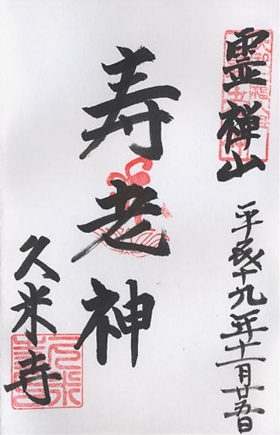 霊禅山
平成十九年十一月廿五日
寿老神
久米寺